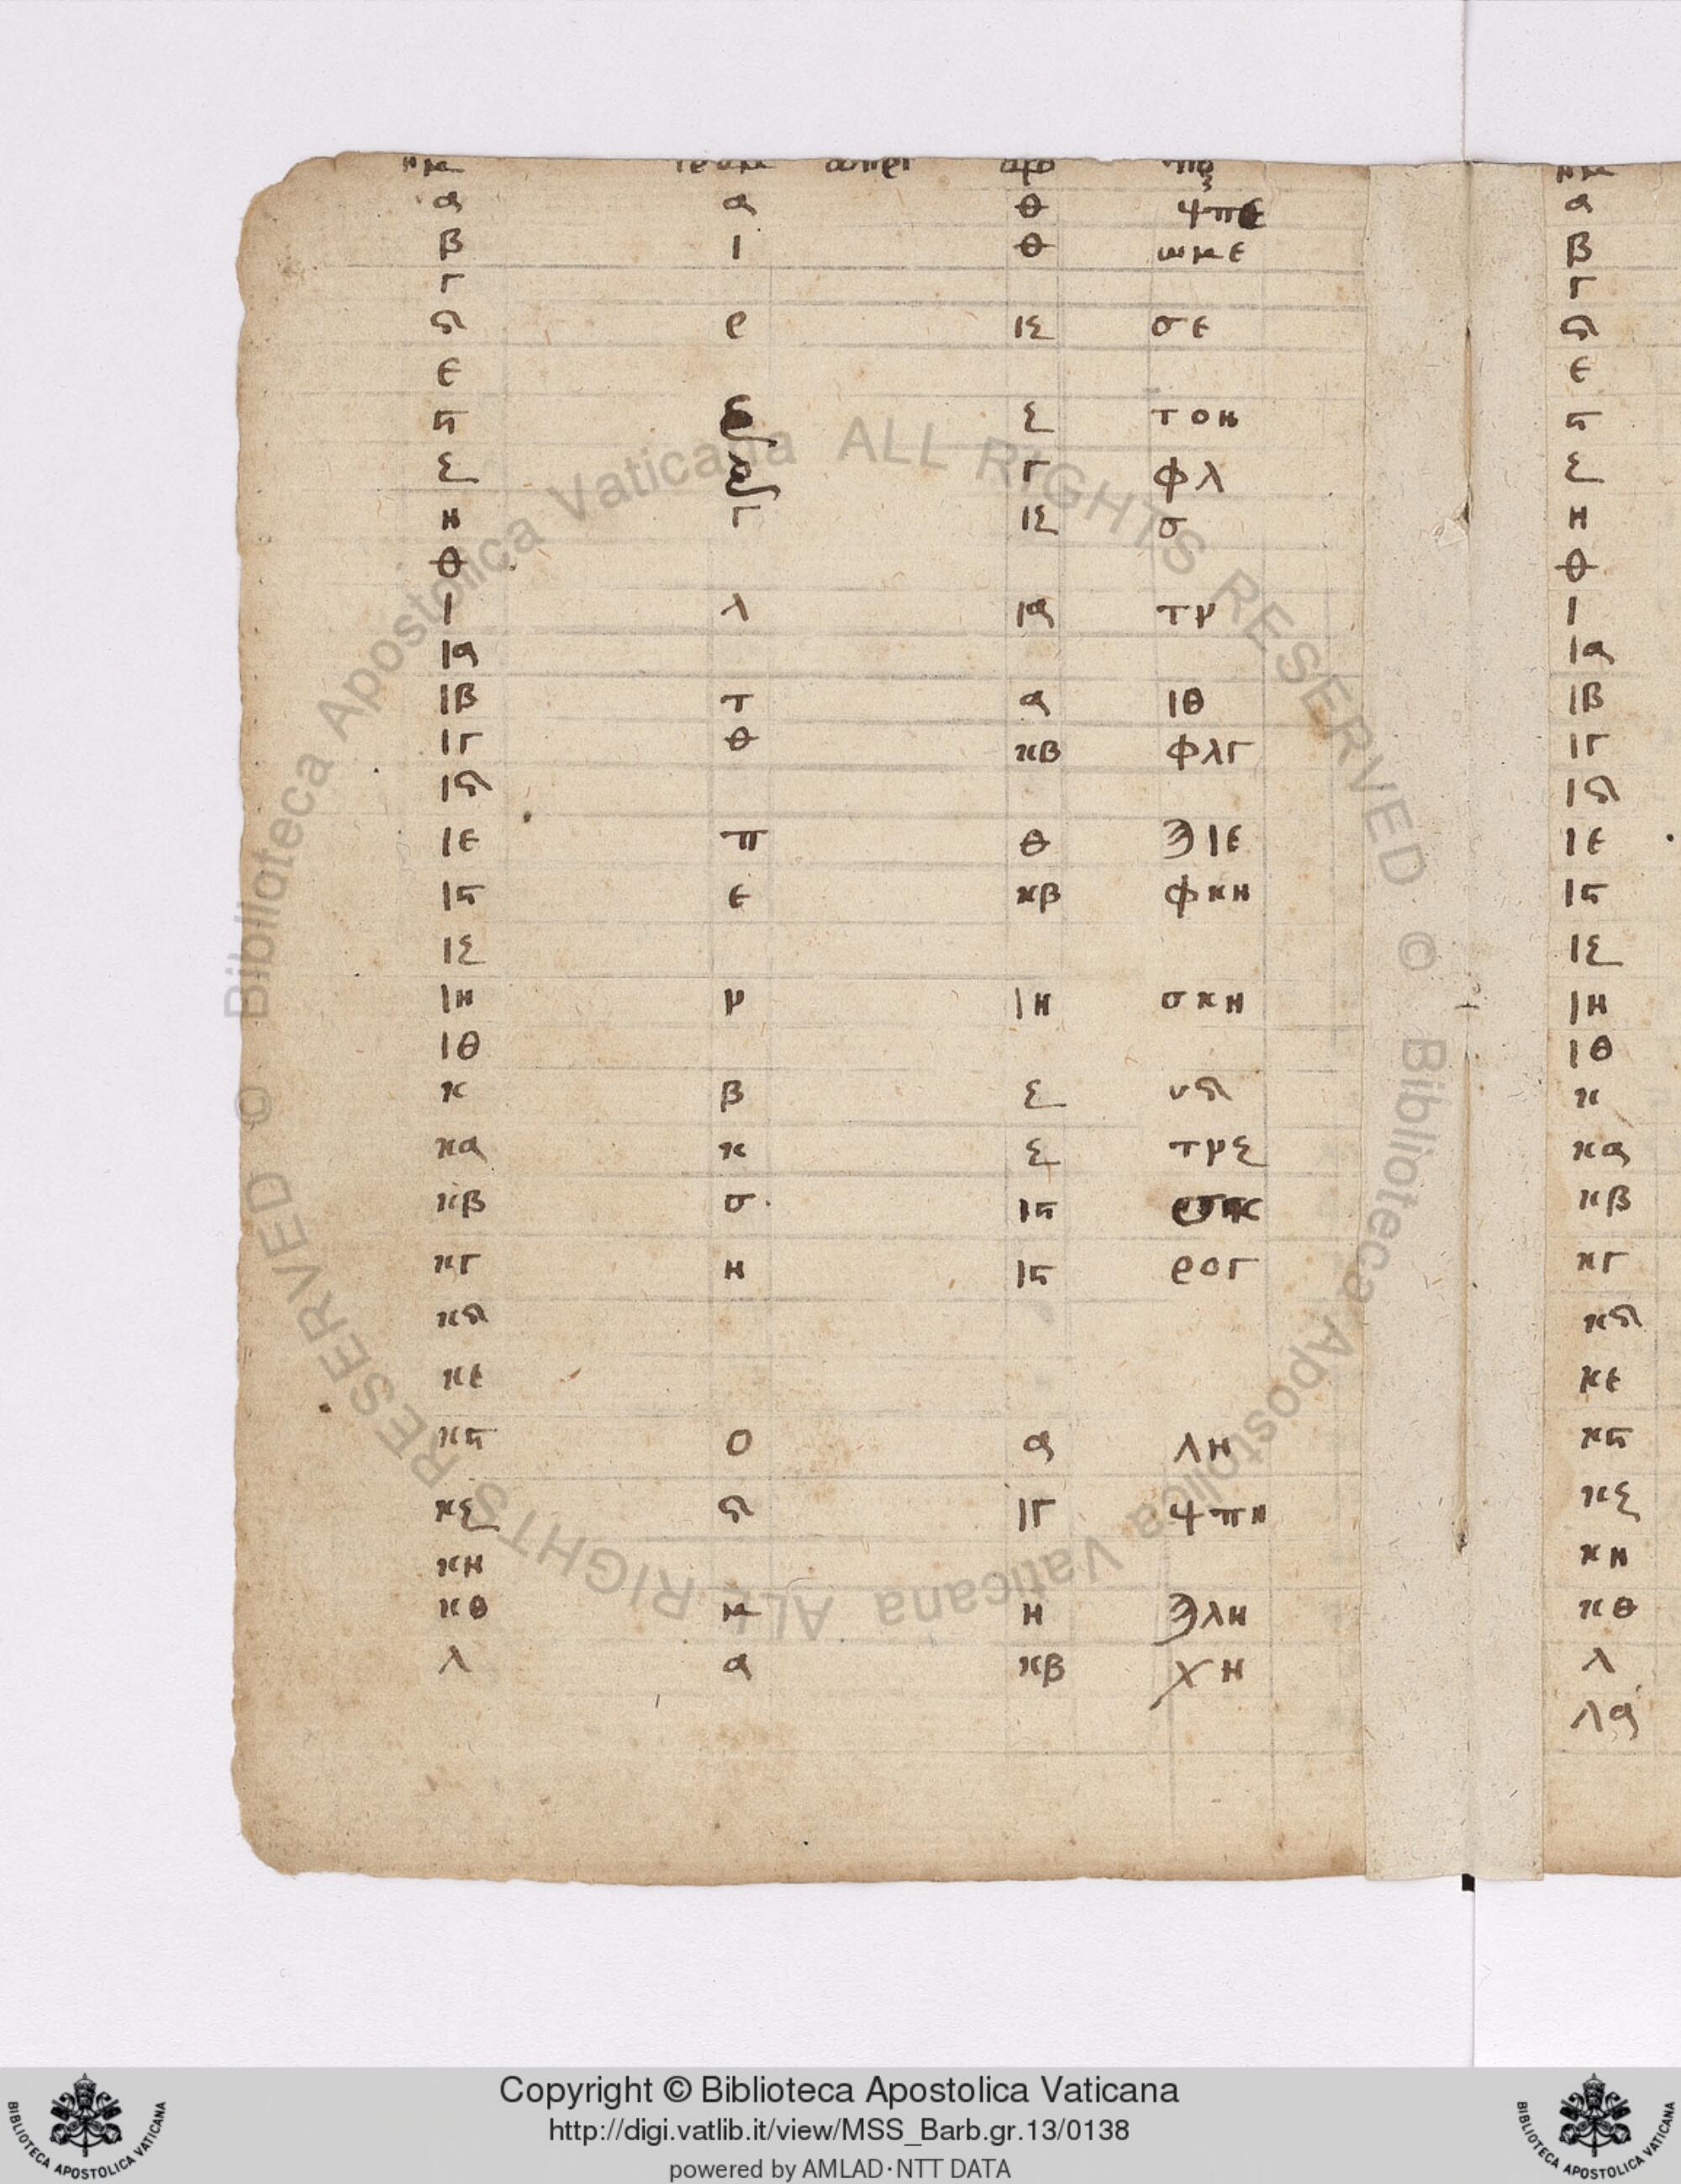 α α θ
β ι θ ωμε
γ
δ ρ ιζ σε
ε
ϛ ζ τον
ζ γ φλ
η γ ιζ σ
θ
ι λ ια τν
ια
ιβ τ α ιθ
ιγ θ κβ φλγ
ιδ
ιε π θ ϡιε
ιϛ ε κβ φκη
ιζ
ιη ν ιη σκη
ιθ
κ β ζ υδ
κα κ ζ τνζ
κβ σ ιϛ
κγ η ιϛ ρογ
κδ
κε
κϛ ο α λη
κζ δ ιγ ψπη
κη
κθ μ η ϡλη
λ α κβ χη
α
β
γ
δ
ε
ϛ
ζ
η
θ
ι
ια
ιβ
ιγ
ιδ
ιε
ιϛ
ιζ
ιη
ιθ
κ
κα
κβ
κγ
κδ
κε
κϛ
κζ
κη
κθ
λ
λα
© Biblioteca Apostolica Vaticana ALL RIGHTS RESERVED © Biblioteca Apostolica Vaticana ALL RIGHTS RESERVED
Copyright © Biblioteca Apostolica Vaticana
http://digi.vatlib.it/view/MSS_Barb.gr.13/0138
powered by AMLAD·NTT DATA
BIBLIOTECA APOSTOLICA VATICANA
BIBLIOTECA APOSTOLICA VATICANA